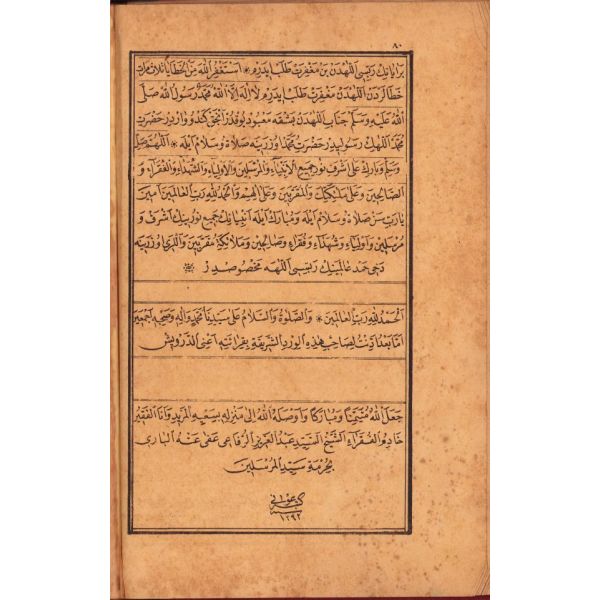 ٨٠
برایاتك ربسی اللهدن بن مغفرت طلب ایدرم * استغفر الله من الخطایا ثلاث مرات
خطالردن اللهدن مغفرت طلب ایدرم لا اله الا الله محمد رسول الله صلی
الله علیه وسلم جناب اللهدن بشقه معبود یوقدر انجق كندو واردر حضرت
محمد اللهك رسولیدر حضرت محمد اوزرینه صلاة وسلام ایله * اللهم صل
وسلم وبارك علی اشرف نور جمیع الانبیاء والمرسلین والاولیاء والشهداء والفقراء و
الصالحین وعلی ملئكتك والمقربین وعلی الهم والحمد لله رب العالمین امین
یا رب سن صلاة وسلام ایله ومبارك ایله انبیانك جمیع نورینك اشرف و
مرسلین واولیاء وشهداء وفقراء وصالحین وملائكه مقربین والی اوزرینه
دخی حمد عالمینك ربسی اللهه مخصوصدر
الحمد لله رب العالمین * والصلوة والسلام علی سیدنا محمد واله وصحبه اجمعین
اما بعد اذنت لصاحب هذه الورد الشریفة بقرائته اعنی الدرویش
جعل الله متیمنا ومباركا واوصله الله الی منزله بسعیه المزید وانا الفقیر
خادم الفقراء الشیخ السید عبد العزیز الرفاعی عفی عنه الباری
بحرمة سید المرسلین
سنه
١٢٩٣